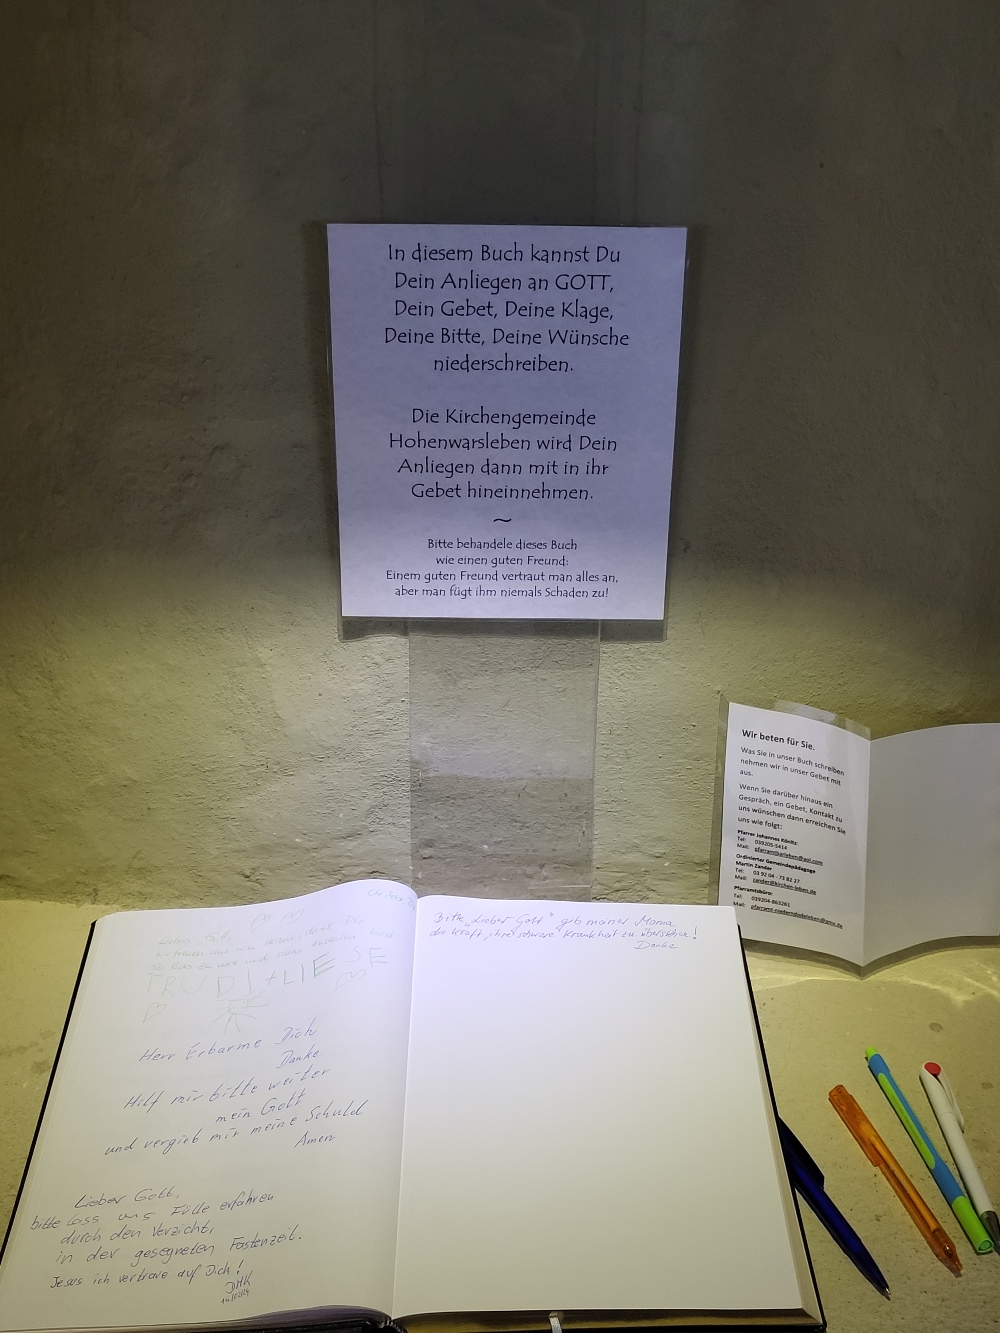 In diesem Buch kannst Du
Dein Anliegen an GOTT,
Dein Gebet, Deine Klage,
Deine Bitte, Deine Wünsche
niederschreiben.
Die Kirchengemeinde
Hohenwarsleben wird Dein
Anliegen dann mit in ihr
Gebet hineinnehmen.
~
Bitte behandele dieses Buch
wie einen guten Freund:
Einem guten Freund vertraut man alles an,
aber man fügt ihm niemals Schaden zu!
Wir beten für Sie.
Was Sie in unser Buch schreiben
nehmen wir in unser Gebet mit
auf.
Wenn Sie darüber hinaus ein
Gespräch, ein Gebet, Kontakt zu
uns wünschen dann erreichen Sie
uns wie folgt:
Pfarrer Johannes Könitz:
Tel: 039205-5414
Mail: pfarramtbarleben@aol.com
Ordinierter Gemeindepädagoge
Martin Zander
Tel: 03 92 04 - 73 82 27
Mail: zander@kirchen-leben.de
Pfarramtsbüro:
Tel: 039204-863261
Mail: pfarramt-niederndodeleben@gmx.de
Lieber Gott,
TRUDI+LIESE
Herr Erbarme Dich
Danke
Hilf mir bitte weiter
mein Gott
und vergieb mir meine Schuld
Amen
Lieber Gott,
bitte lass uns Fülle erfahren
durch den Verzicht,
in der gesegneten Fastenzeit.
Jesus ich vertraue auf Dich!
Bitte "Lieber Gott" gib meiner Mama
die Kraft, ihre schwere Krankheit zu überstehen!
Danke